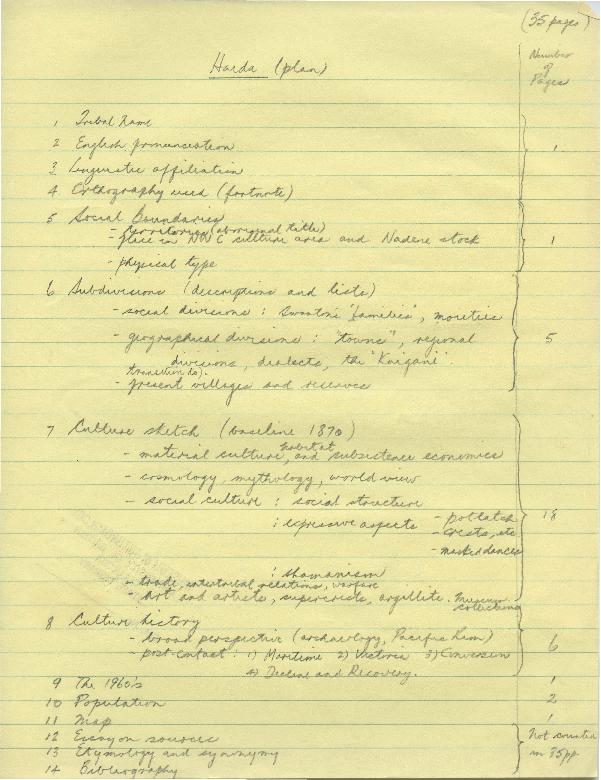 (35 pages)
Number
of
Pages
Haida (plan)
1 Tribal Name
2 English pronunciation
3 Linguistic affiliation
4 Orthography used (footnote)
1
5 Social Boundaries
- territories (aboriginal title)
- place in NWC culture area and Nadene stock
- physical type
1
6 Subdivisions (descriptions and lists)
- social divisions : Swanton "families", moieties
- geographical divisions : "towns", regional
divisions, dialects, the "Kaigani".
transition to).
- present villages and reserves
5
7 Culture sketch (baseline 1870)
- material culture, habitat and subsistence economics
- cosmology, mythology, world view
- social culture : social structure
: expressive aspects - potlatch
- crests, etc
- masked dances
: shamanism
- trade, intertribal relations, warfare
- art and artists, supercrests, argillite. Museum
collections
18
8 Culture history
- broad perspective (archaeology, Pacific Rim)
- post-contact : 1) Maritime 2) Victoria 3) Conversion
4) Decline and Recovery.
6
9 The 1960's 1
10 Population 2
11 Map 1
12 Essay on sources
13 Etymology and synonymy
14 Bibliography
Not counted
in 35pp